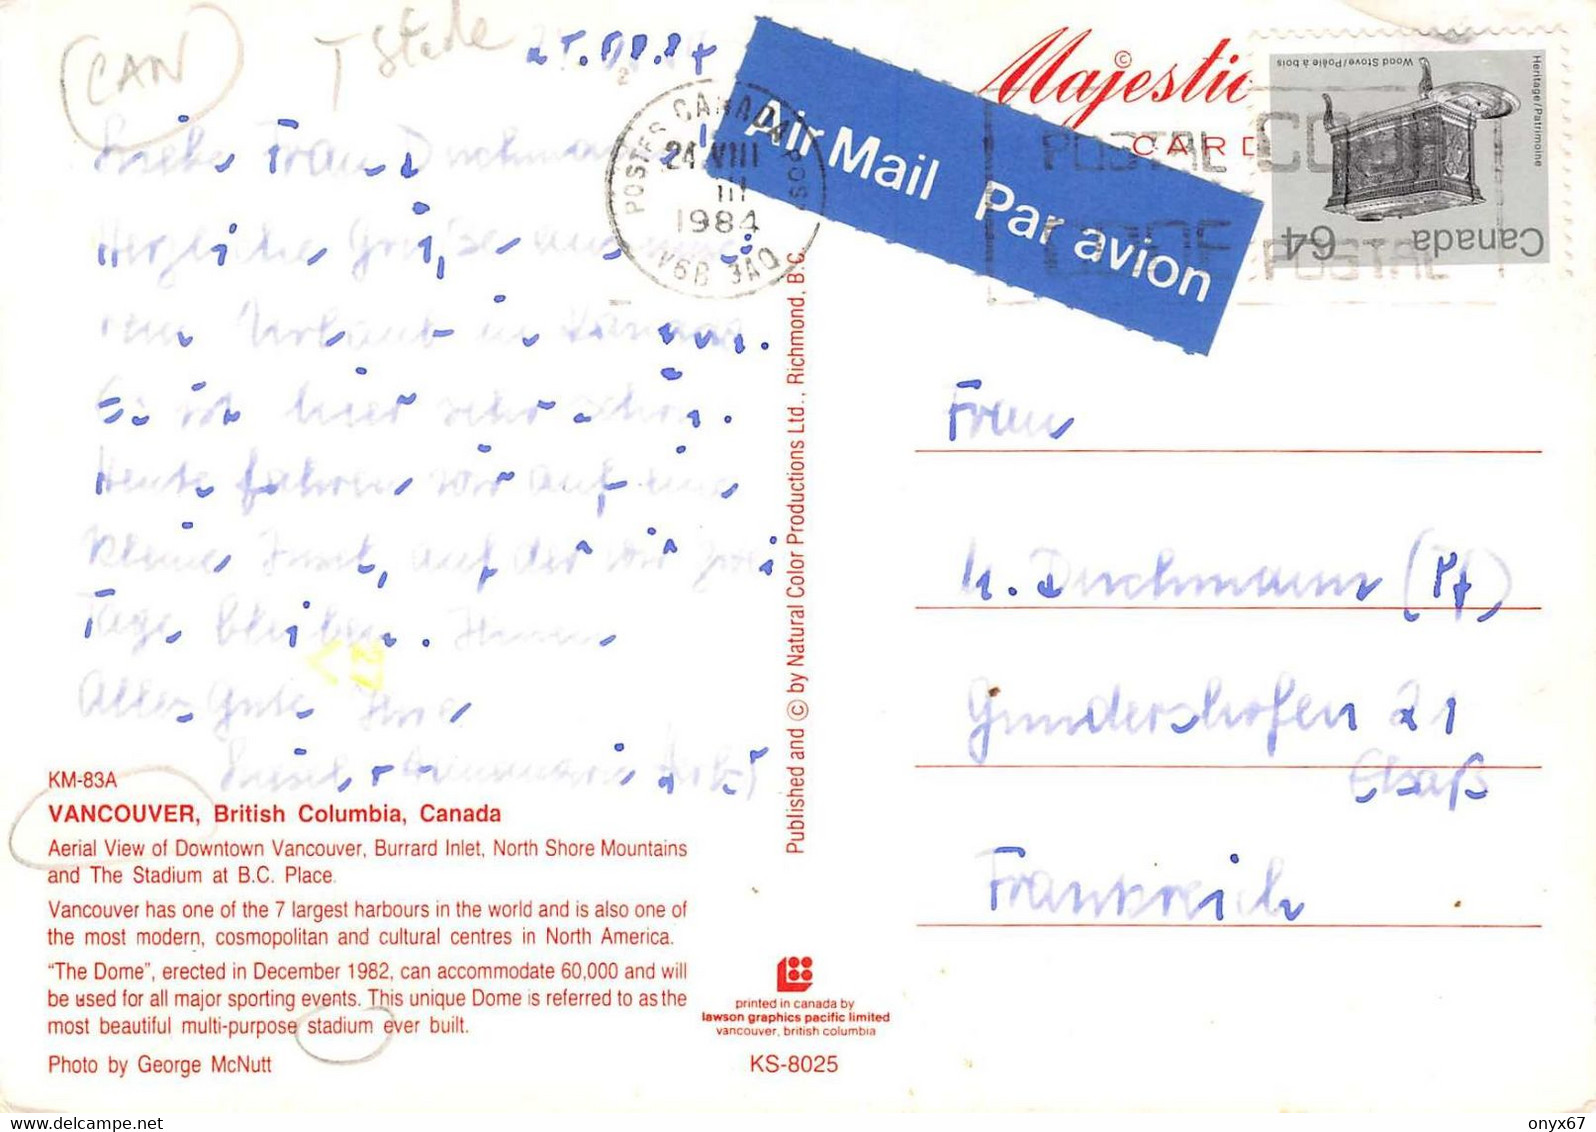 CAN
T Stade
Majestic
CARD
Air Mail Par avion
POSTES CANADA POST
24 VIII
1984
V6B 3A0
POSTAL CODE
CODE POSTAL
Heritage/Patrimoine
Wood Stove/Poêle à bois
Canada 64
Liebe Frau Duchmann!
Herzliche Grüße aus unse
rem Urlaub in Kanada
Es ist hier sehr schön.
Heute fahren wir auf eine
kleine Insel, auf der wir zwei
Tage bleiben. Ihnen
Alles Gute Ihre
Liesel + Annemarie
27
Frau
h. Duchmann (Pf)
Gundershofen 21
Elsaß
Frankreich
KM-83A
VANCOUVER, British Columbia, Canada
Aerial View of Downtown Vancouver, Burrard Inlet, North Shore Mountains
and The Stadium at B.C. Place.
Vancouver has one of the 7 largest harbours in the world and is also one of
the most modern, cosmopolitan and cultural centres in North America.
"The Dome", erected in December 1982, can accommodate 60,000 and will
be used for all major sporting events. This unique Dome is referred to as the
most beautiful multi-purpose stadium ever built.
Photo by George McNutt
Published and © by Natural Color Productions Ltd., Richmond, B.C.
printed in canada by
lawson graphics pacific limited
vancouver, british columbia
KS-8025
www.delcampe.net
onyx67